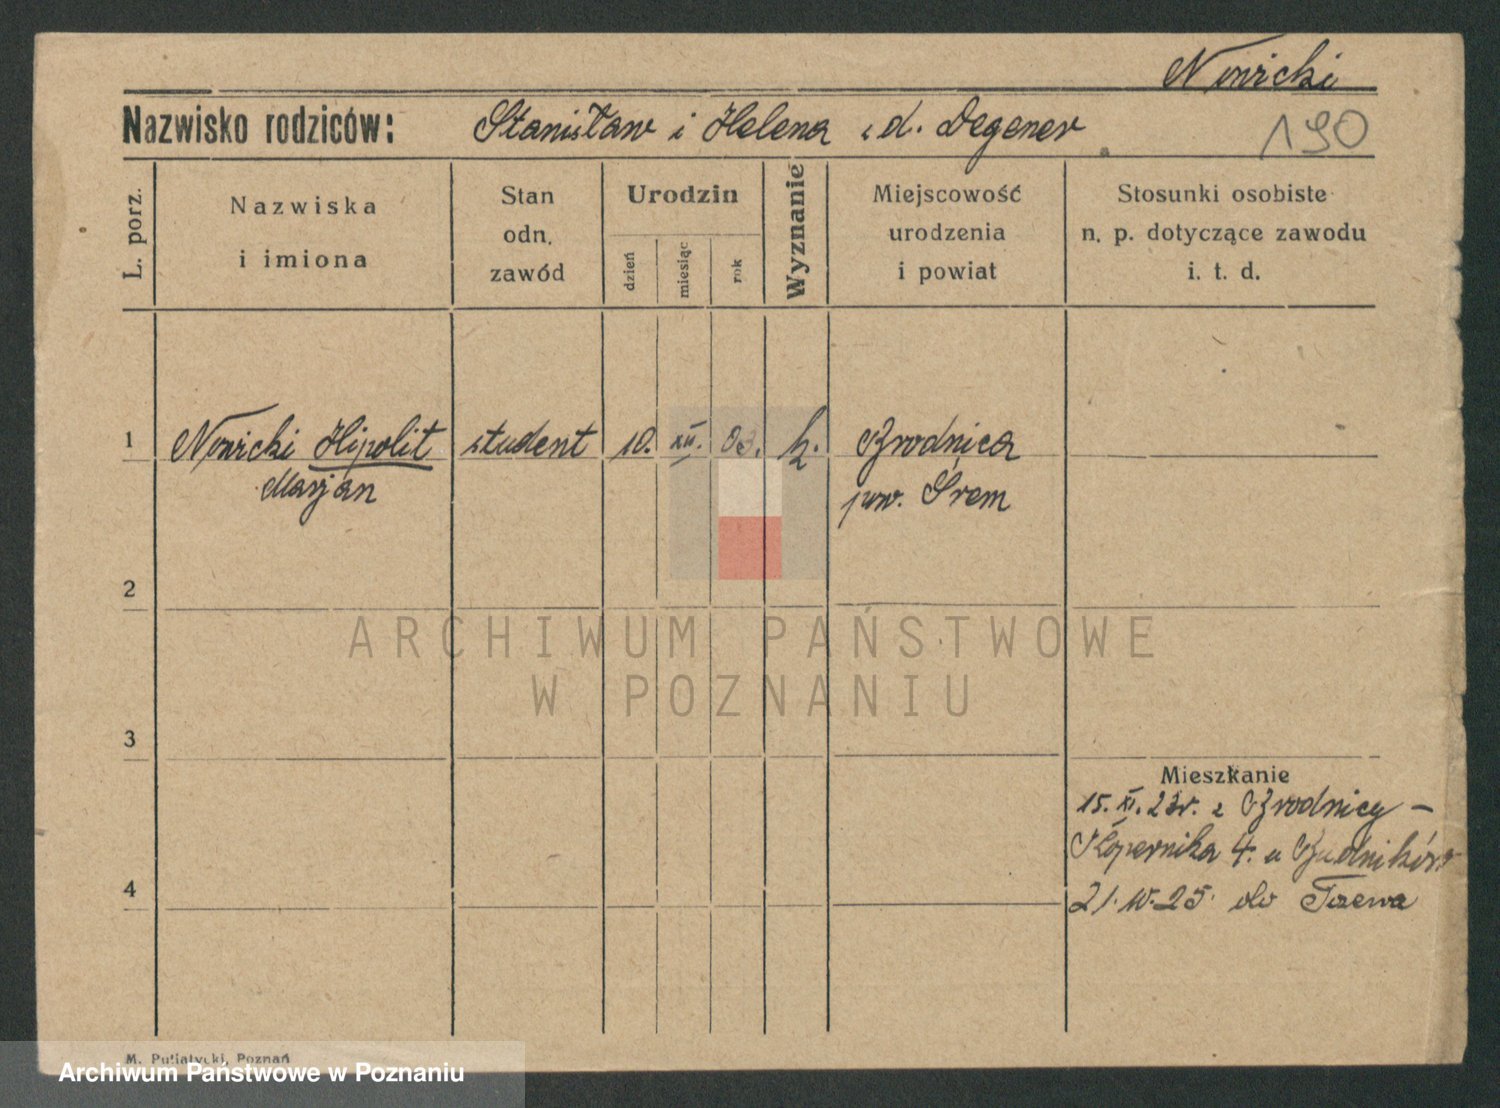 Nowicki
Nazwisko rodziców: Stanisław i Helena z d. Degener
190
L. porz.
Nazwiska
i imiona
Stan
odn.
zawód
Urodzin
dzień
miesiąc
rok
Wyznanie
Miejscowość
urodzenia
i powiat
Stosunki osobiste
n. p. dotyczące zawodu
i. t. d.
1 Nowicki Hipolit student 10. XII. 03. k. Brodnica
Marjan pow. Śrem
2
ARCHIWUM PAŃSTWOWE
W POZNANIU
3
Mieszkanie
15. XI. 23r. z Brodnicy –
Kopernika 4. u
4
21. IV. 25. do Tczewa
M. Putiatycki, Poznań
Archiwum Państwowe w Poznaniu